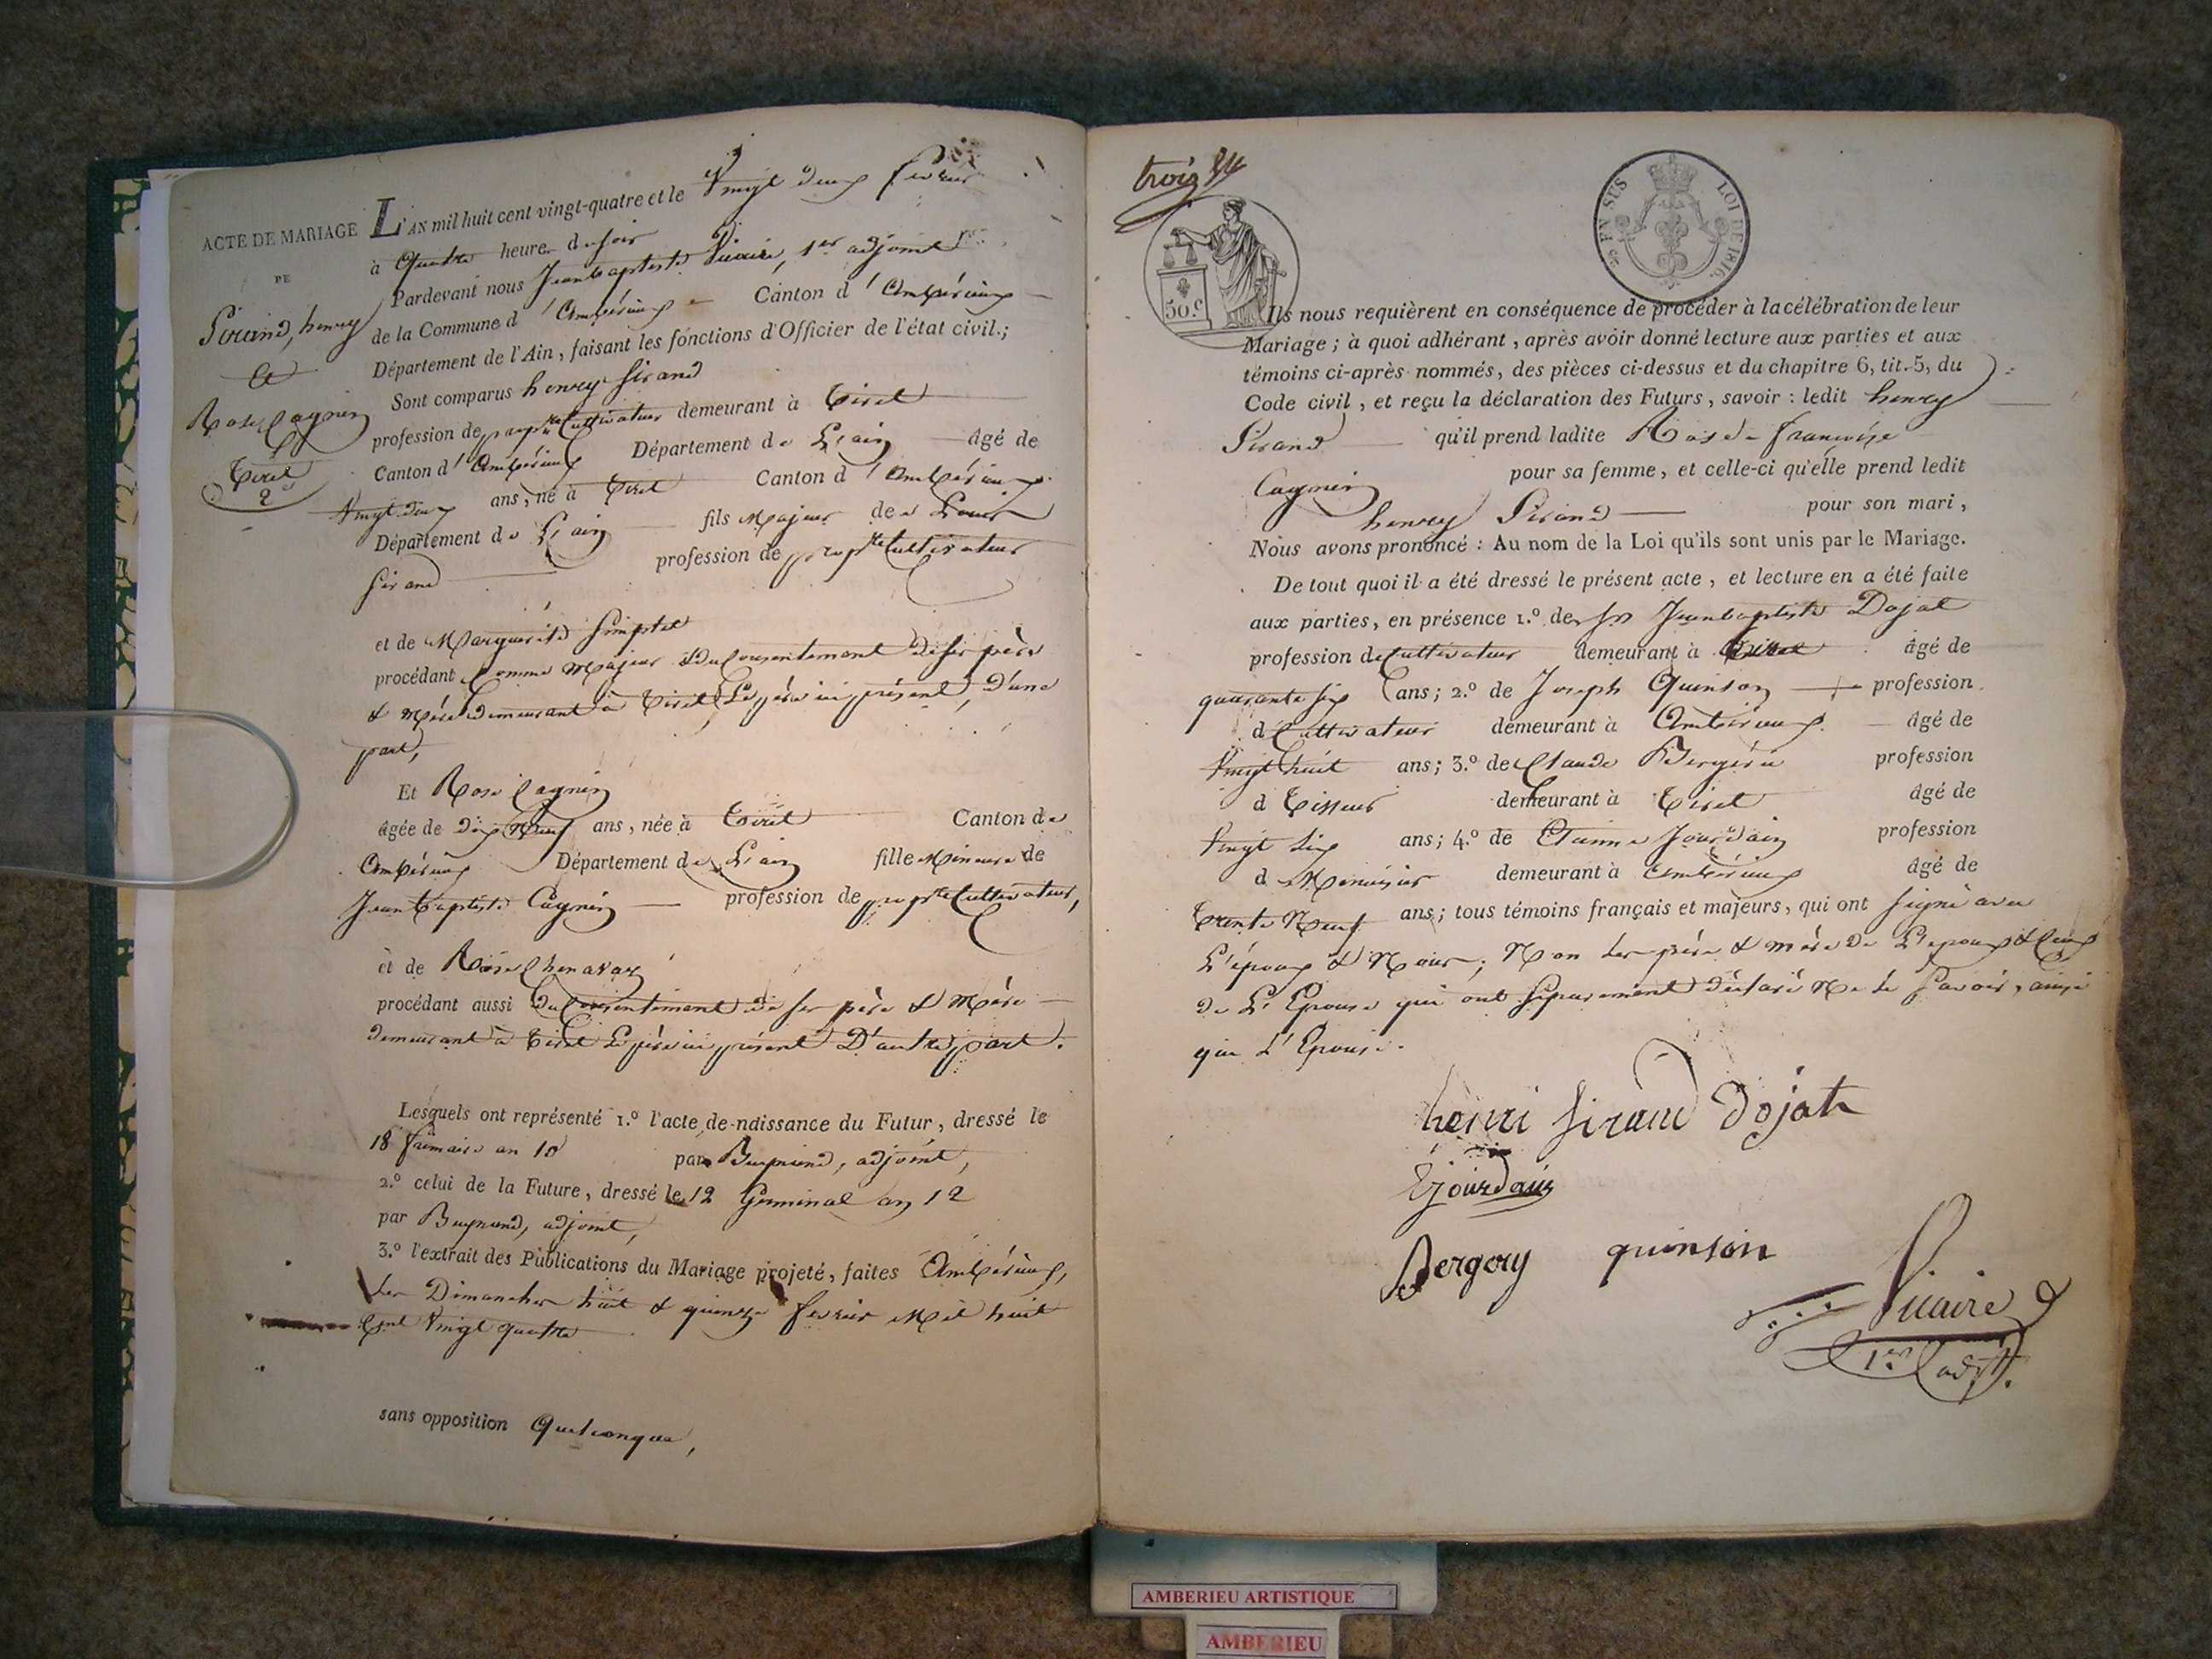 ACTE DE MARIAGE
DE
Sirand, henry
et
Rose Cagnin
Tiret
2
L'AN mil huit cent vingt-quatre et le Vingt deux fevrier
à Quatre heure du soir
Pardevant nous Jeanbaptiste Vicaire, 1er adjoint
de la Commune d'Ambérieux Canton d'Ambérieux
Département de l'Ain, faisant les fonctions d'Officier de l'état civil.;
Sont comparus henry Sirand
profession de propre Cultivateur demeurant à Tiret
Canton d'Ambérieux Département de L'ain âgé de
Vingt deux ans, né à Tiret Canton d'Ambérieux
Département de L'ain fils Majeur de Louis
Sirand profession de propre Cultivateur
et de Marguerite
procédant Comme Majeur & du Consentement de ses père
& Mère demeurant à Tiret Le père ici présent, D'une
part,
Et Rose Cagnin
âgée de dix Neuf ans, née à Tiret Canton de
Ambérieux Département de L'ain fille Mineure de
Jean Baptiste Cagnin profession de propre Cultivateur,
et de Rose Chenavaz
procédant aussi Du Consentement de ses père & Mère
demeurant à Tiret Le père ici présent D'autre part.
Lesquels ont représenté 1.º l'acte de naissance du Futur, dressé le
18 frimaire an 10 par adjoint,
2.º celui de la Future, dressé le 12 Germinal an 12
par adjoint,
3.º l'extrait des Publications du Mariage projeté, faites Ambérieux,
Les Dimanches huit & quinze fevrier Mil huit
Cent Vingt quatre
sans opposition Quelconque,
trois
50.c
EN SUS
LOI DE 1816.
Ils nous requièrent en conséquence de procéder à la célébration de leur
Mariage; à quoi adhérant, après avoir donné lecture aux parties et aux
témoins ci-après nommés, des pièces ci-dessus et du chapitre 6, tit. 5, du
Code civil, et reçu la déclaration des Futurs, savoir: ledit henry
Sirand qu'il prend ladite Rose francoise
Cagnin pour sa femme, et celle-ci qu'elle prend ledit
henry Sirand pour son mari,
Nous avons prononcé: Au nom de la Loi qu'ils sont unis par le Mariage.
De tout quoi il a été dressé le présent acte, et lecture en a été faite
aux parties, en présence 1.º de Sr Jeanbaptiste Dojat
profession de Cultivateur demeurant à Tiret âgé de
quarante six ans; 2.º de Joseph Quinson profession
d Cultivateur demeurant à Ambérieux âgé de
Vingt huit ans; 3.º de Claude Bergéri profession
d Tisseur demeurant à Tiret âgé de
Vingt six ans; 4.º de Etienne Jourdain profession
d Menuisier demeurant à Ambérieux âgé de
Trente Neuf ans; tous témoins français et majeurs, qui ont signé avec
L'époux & Nous; Non les père & mère de L'epoux & Ceux
de L'Epouse qui ont séparement déclaré Ne le savoir, ainsi
que L'Epouse.
henri Sirand Dojat
Ejourdain
Bergery quinson
Vicaire
1er adjt.
AMBERIEU ARTISTIQUE
AMBERIEU